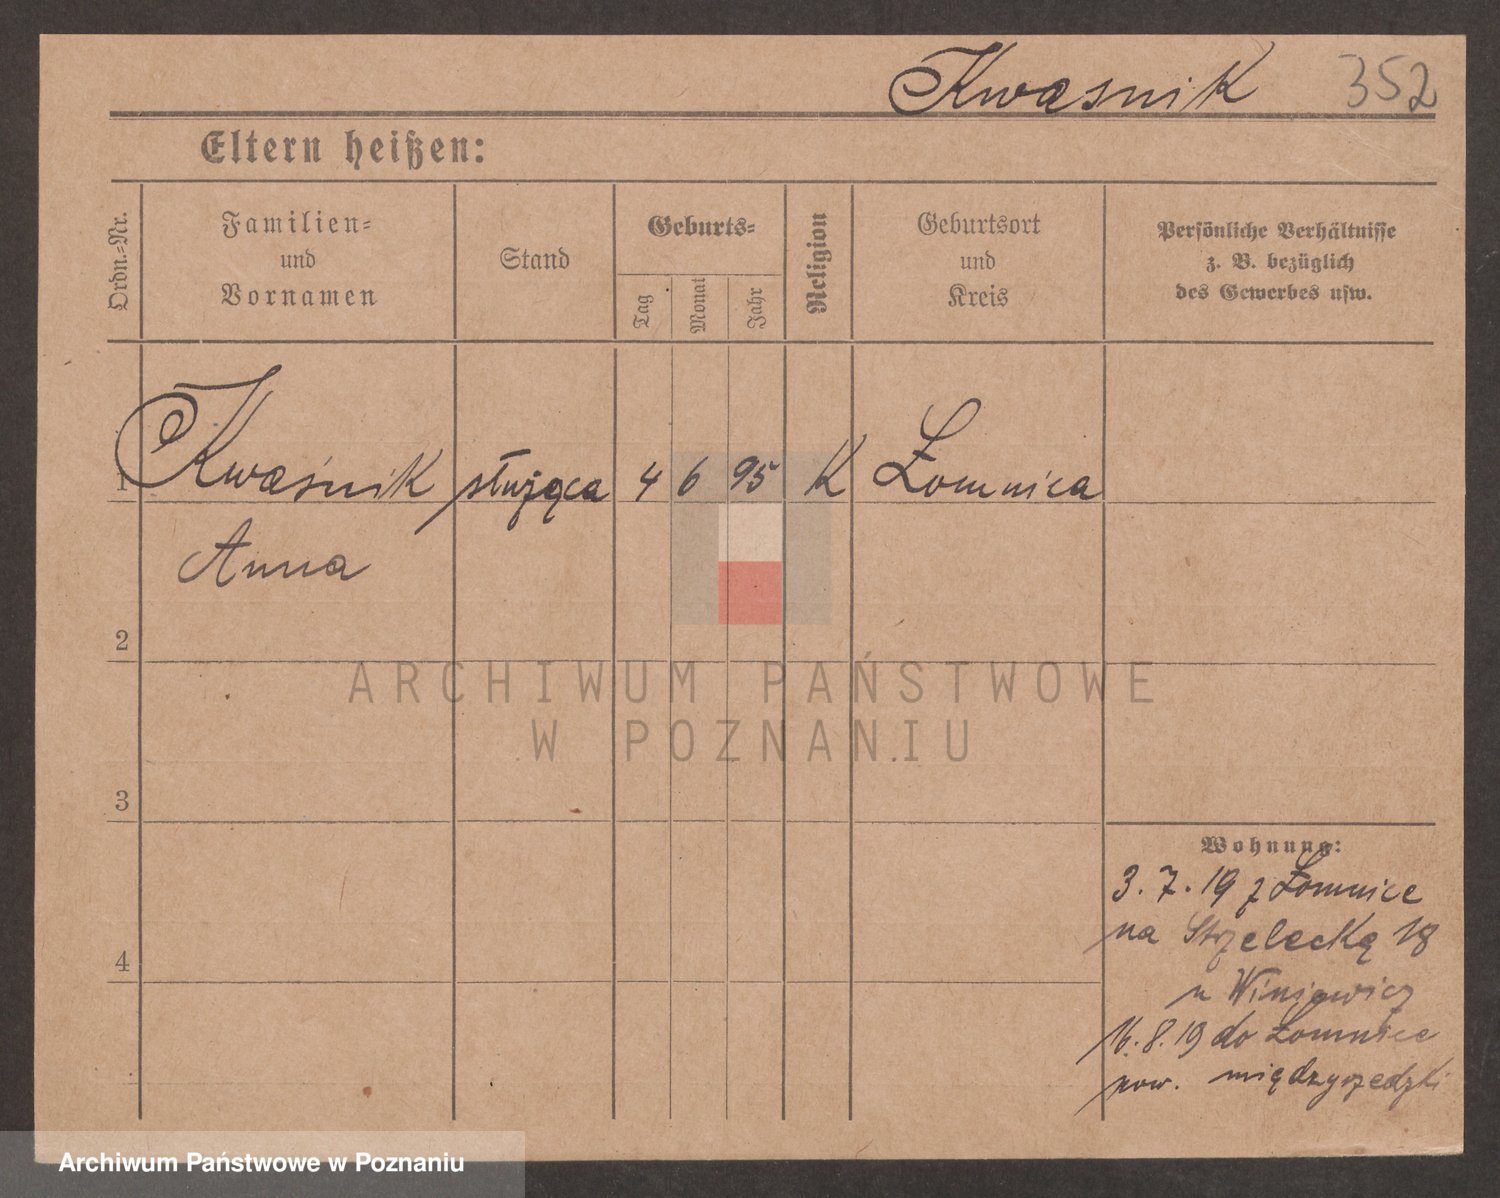 Kwasnik 352
Eltern heißen:
Ordn.-Nr.
Familien-
und
Vornamen
Stand
Geburts-
Tag
Monat
Jahr
Religion
Geburtsort
und
Kreis
Persönliche Verhältnisse
z. B. bezüglich
des Gewerbes usw.
1 Kwaśnik służąca 4 6 95 K Łomnica
Anna
2
3
4
Wohnung:
3. 7. 19 z Łomnice
na Strzelecką 18
u
16. 8. 19 do Łomnice
pow. międzyrzedzki
ARCHIWUM PAŃSTWOWE
W POZNANIU
Archiwum Państwowe w Poznaniu